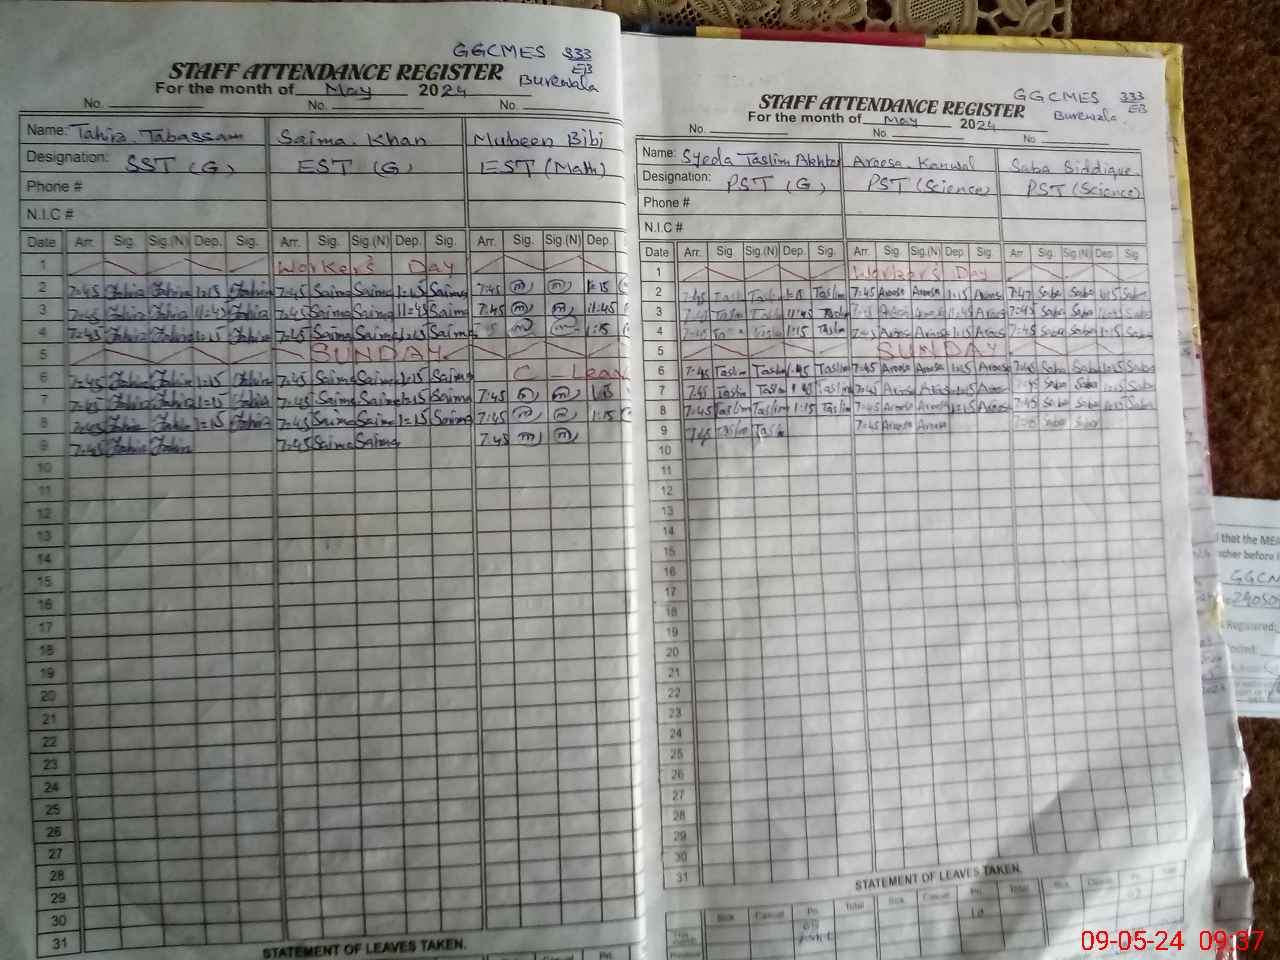 GGCMES 333
EB
STAFF ATTENDANCE REGISTER Burewala
For the month of May 2024
No. No. No.
Name: Tahira Tabassam Saima Khan Mubeen Bibi
Designation: SST (G) EST (G) EST (Math)
Phone #
N.I.C #
Date Arr. Sig. Sig.(N) Dep. Sig. Arr. Sig. Sig.(N) Dep. Sig. Arr. Sig. Sig.(N) Dep.
1 Worker's Day
2 7:45 Tahira Tahira 1:15 Tahira 7:45 Saima Saima 1:15 Saima 7:45 1:15
3 7:45 Tahira Tahira 11:45 Tahira 7:45 Saima Saima 11:45 Saima 7:45 11:45
4 7:45 Tahira Tahira 1:15 Tahira 7:45 Saima Saima 1:15 Saima 1:15
5 SUNDAY
6 7:45 Tahira Tahira 1:15 Tahira 7:45 Saima Saima 1:15 Saima C-Leav
7 7:45 Tahira Tahira 1:15 Tahira 7:45 Saima Saima 1:15 Saima 7:45 1:15
8 7:45 Tahira Tahira 1:15 Tahira 7:45 Saima Saima 1:15 Saima 7:45 1:15
9 7:45 Tahira Tahira 7:45 Saima Saima 7:45
10
11
12
13
14
15
16
17
18
19
20
21
22
23
24
25
26
27
28
29
30
31
STATEMENT OF LEAVES TAKEN.
Sick Casual Pri.
GGCMES 333
EB
STAFF ATTENDANCE REGISTER Burewala
For the month of May 2024
No. No. No
Name: Syeda Taslim Akhter Areesa Kanwal Saba Siddique
Designation: PST (G) PST (Science) PST (Science)
Phone #
N.I.C #
Date Arr. Sig. Sig.(N) Dep. Sig. Arr. Sig. Sig.(N) Dep. Sig. Arr Sig. Sig.(N) Dep. Sig
1 Workers Day
2 7:45 1:15 Taslim 7:45 Areesa Areesa 1:15 Arees Saba Saba Saba
3 Taslim 11:45 Areesa 11:45 Arees 7:45 Saba Saba Saba
4 1:15 Taslim Areesa Areesa 1:15 Arees 7:45 Saba Saba 1:15 Saba
5 SUNDAY
6 7:45 Taslim Taslim 1:15 Taslim 7:45 Areesa Areesa 1:15 Arees 7:45 Saba Saba 1:15 Saba
7 7:45 Taslim Taslim Taslim 7:45 Areesa Areesa 1:15 Arees 7:45 Saba Saba 1:15 Saba
8 7:45 Taslim Taslim 1:15 Taslim 7:45 Areesa Areesa 1:15 Arees 7:45 Saba Saba Saba
9 7:45 Taslim Taslim 7:45 Areesa Areesa Saba Saba
10
11
12
13
14
15
16
17
18
19
20
21
22
23
24
25
26
27
28
29
30
31
STATEMENT OF LEAVES TAKEN.
Sick Casual Pri. Total Sick Casual Pri. Total Sick Casual
that the MEA
before
GGCM
Registered:
09-05-24 09:37